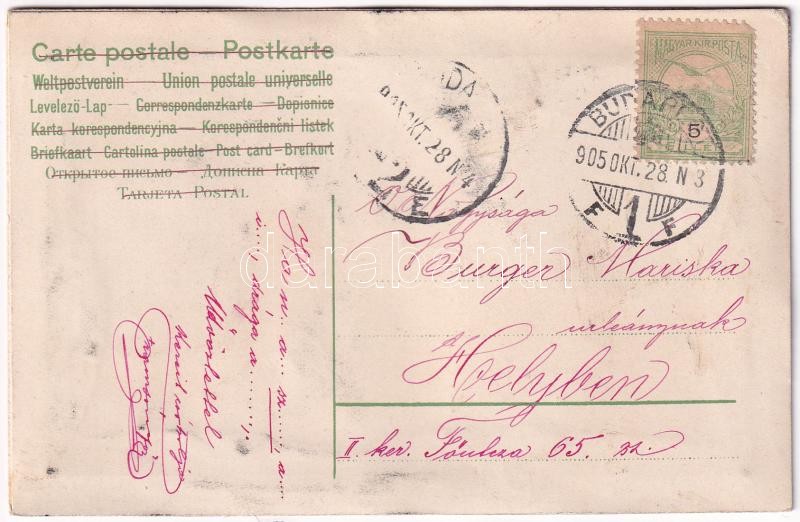 Carte postale — Postkarte
Weltpostverein — Union postale universelle
Levelező-Lap — Correspondenzkarte — Dopisnice
Karta korespondencyjna — Korespondenční listek
Briefkaart — Cartolina postale — Post card — Brefkort
Открытое письмо — Дописна Карта
TARJETA POSTAL
MAGYAR KIR. POSTA
5
BUDAPEST
905 OKT. 28. N 3
1
F F
905 OKT. 28 N 4
2
E
Ő Nagysága
Burger Mariska
urleánynak
Helyben
II. ker. Főutcza 65. sz.
Ha n. a. sz....., a....
u...., drága a ........,
Üdvözlettel
darabanth